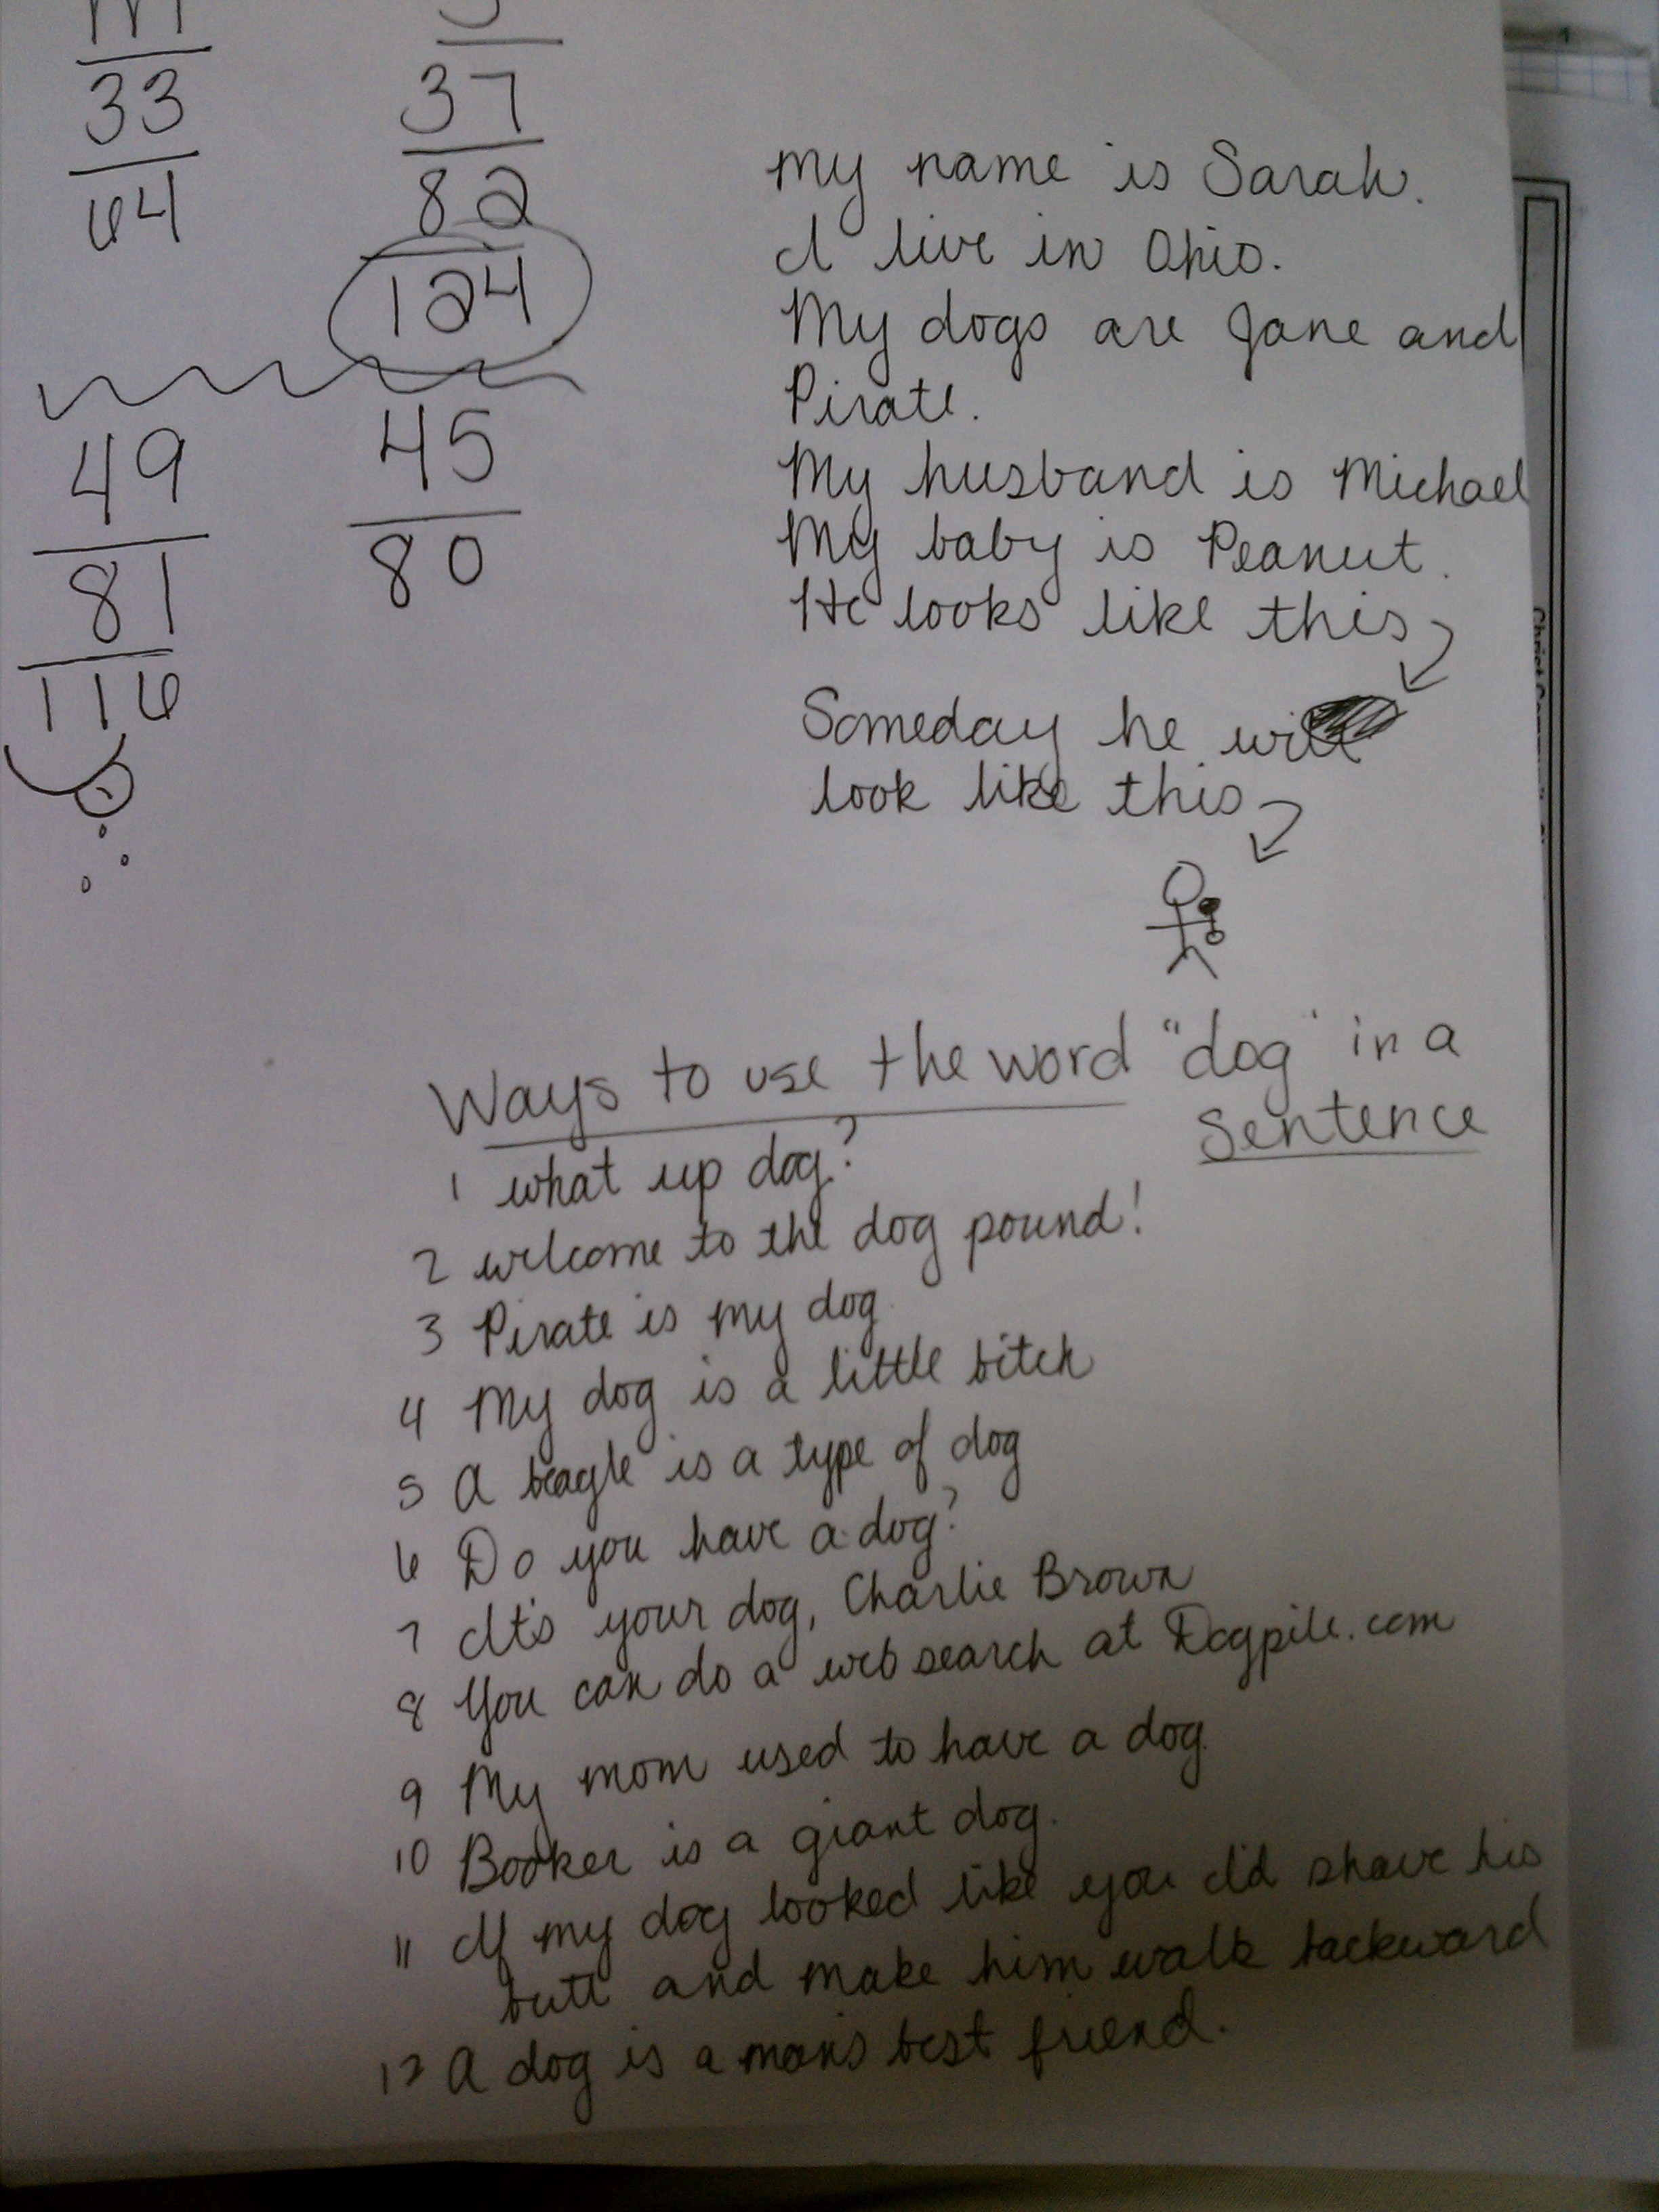 33
64
37
82
124
49
81
116
45
80
My name is Sarah.
I live in Ohio.
My dogs are Jane and
Pirate.
My husband is Michael
My baby is Peanut.
He looks like this
Someday he will
look like this
Ways to use the word "dog" in a
sentence
1 what up dog?
2 welcome to the dog pound!
3 Pirate is my dog.
4 My dog is a little bitch
5 A beagle is a type of dog
6 Do you have a dog?
7 It's your dog, Charlie Brown
8 You can do a web search at Dogpile.com
9 My mom used to have a dog.
10 Booker is a giant dog.
11 If my dog looked like you I'd shave his
butt and make him walk backward
12 A dog is a man's best friend.